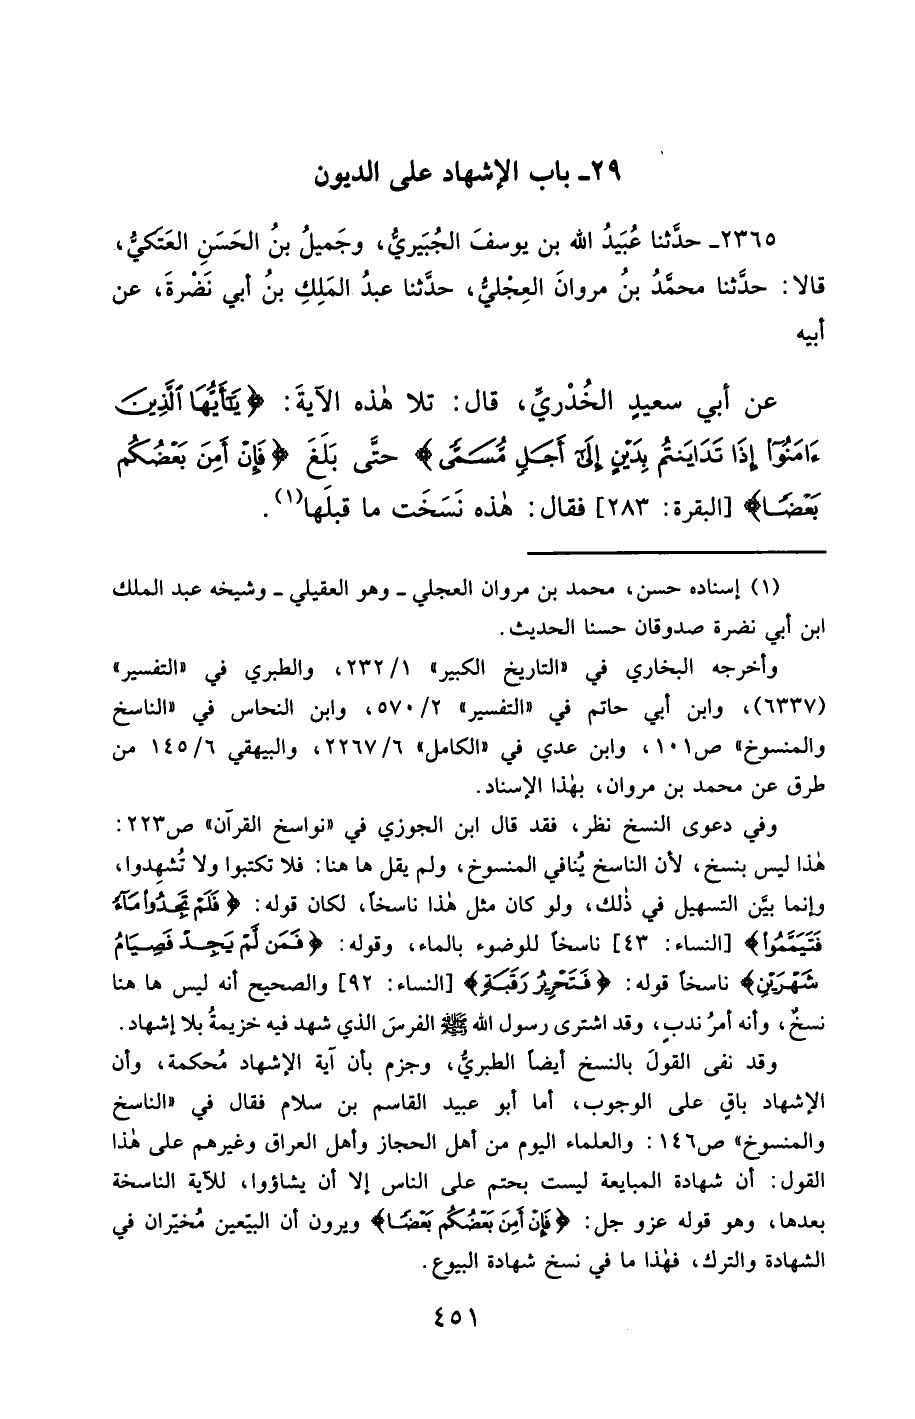 ٢٩ـ باب الإشهاد على الديون
٢٣٦٥ـ حدَّثنا عُبَيدُ الله بن يوسفَ الجُبَيريُّ، وجَميلُ بنُ الحَسَنِ العَتَكيُّ،
قالا: حدَّثنا محمَّدُ بنُ مروانَ العِجْليُّ، حدَّثنا عبدُ المَلِكِ بنُ أبي نَضْرةَ، عن
أبيه
عن أبي سعيدٍ الخُدْريِّ، قال: تلا هٰذه الآيةَ: ﴿يَٰٓأَيُّهَا ٱلَّذِينَ
ءَامَنُوٓاْ إِذَا تَدَايَنتُم بِدَيْنٍ إِلَىٰٓ أَجَلٍ مُّسَمًّى﴾ حتَّى بَلَغَ ﴿فَإِنْ أَمِنَ بَعْضُكُم
بَعْضًا﴾ [البقرة: ٢٨٣] فقال: هٰذه نَسَخَت ما قبلَها(١).
(١) إسناده حسن، محمد بن مروان العجلي ـ وهو العقيلي ـ وشيخه عبد الملك
ابن أبي نضرة صدوقان حسنا الحديث.
وأخرجه البخاري في «التاريخ الكبير» ١/ ٢٣٢، والطبري في «التفسير»
(٦٣٣٧)، وابن أبي حاتم في «التفسير» ٢/ ٥٧٠، وابن النحاس في «الناسخ
والمنسوخ» ص١٠١، وابن عدي في «الكامل» ٦/ ٢٢٦٧، والبيهقي ٦/ ١٤٥ من
طرق عن محمد بن مروان، بهٰذا الإسناد.
وفي دعوى النسخ نظر، فقد قال ابن الجوزي في «نواسخ القرآن» ص٢٢٣:
هٰذا ليس بنسخ، لأن الناسخ يُنافي المنسوخ، ولم يقل ها هنا: فلا تكتبوا ولا تُشهِدوا،
وإنما بيَّن التسهيل في ذٰلك، ولو كان مثل هٰذا ناسخاً، لكان قوله: ﴿فَلَمْ تَجِدُواْ مَآءً
فَتَيَمَّمُواْ﴾ [النساء: ٤٣] ناسخاً للوضوء بالماء، وقوله: ﴿فَمَن لَّمْ يَجِدْ فَصِيَامُ
شَهْرَيْنِ﴾ ناسخاً قوله: ﴿فَتَحْرِيرُ رَقَبَةٍ﴾ [النساء: ٩٢] والصحيح أنه ليس ها هنا
نسخٌ، وأنه أمرُ ندبٍ، وقد اشترى رسول الله ﷺ الفرسَ الذي شهد فيه خزيمةُ بلا إشهاد.
وقد نفى القولَ بالنسخ أيضاً الطبريُّ، وجزم بأن آية الإشهاد مُحكمة، وأن
الإشهاد باقٍ على الوجوب، أما أبو عبيد القاسم بن سلام فقال في «الناسخ
والمنسوخ» ص١٤٦: والعلماء اليوم من أهل الحجاز وأهل العراق وغيرهم على هٰذا
القول: أن شهادة المبايعة ليست بحتم على الناس إلا أن يشاؤوا، للآية الناسخة
بعدها، وهو قوله عزو جل: ﴿فَإِنْ أَمِنَ بَعْضُكُم بَعْضًا﴾ ويرون أن البيّعين مُخيّران في
الشهادة والترك، فهٰذا ما في نسخ شهادة البيوع.
٤٥١